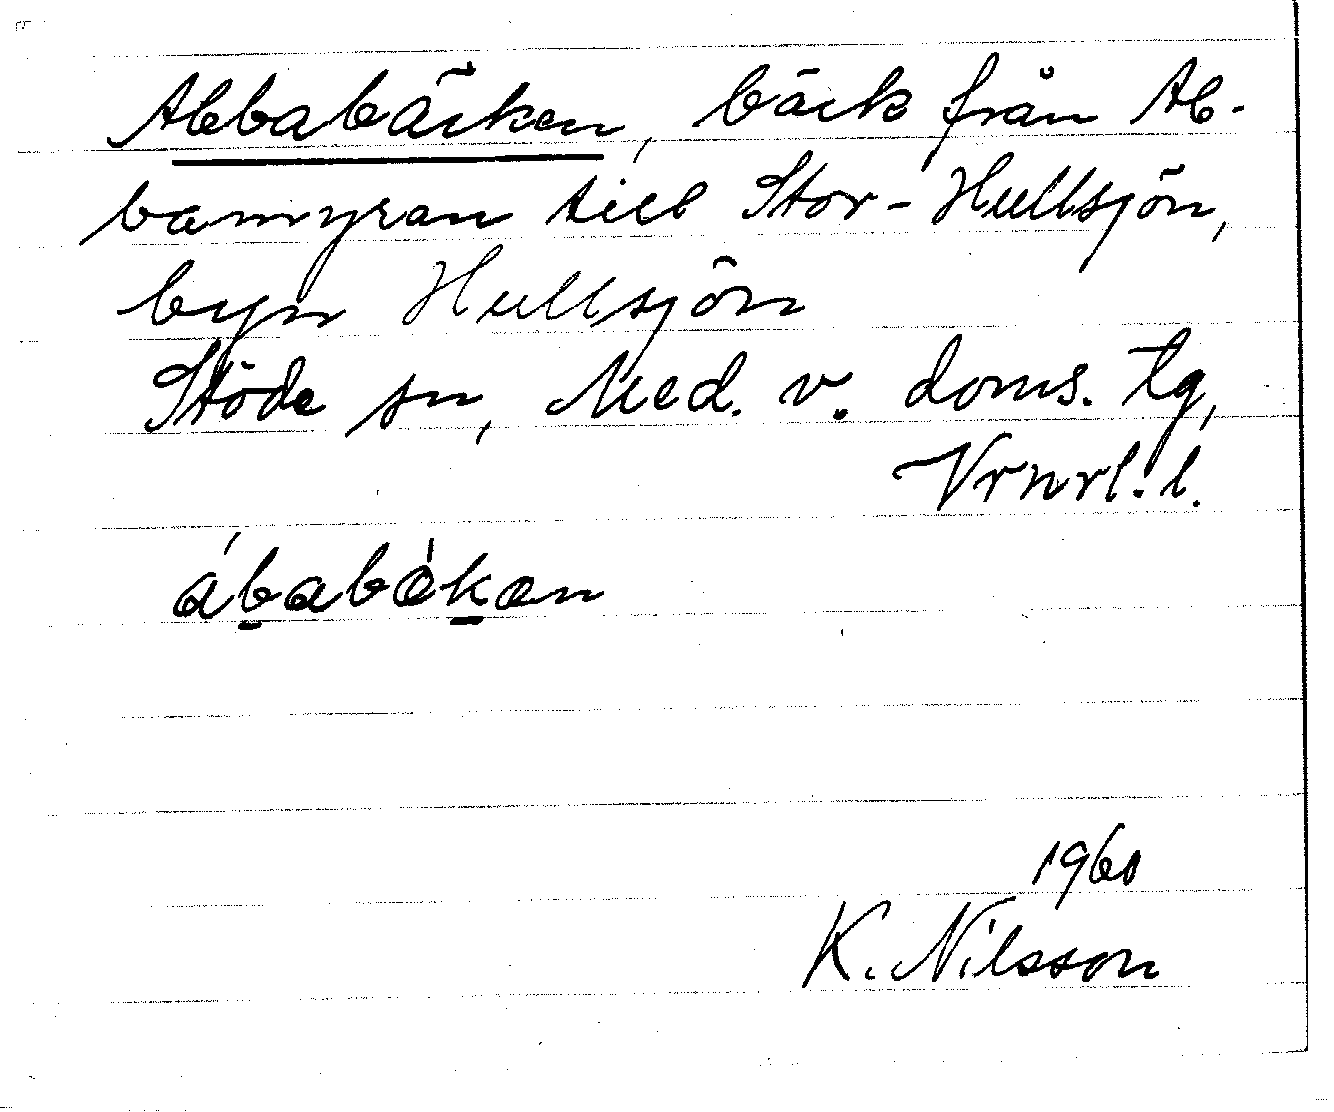 Abbabäcken, bäck från Ab-
bamyran till Stor-Hullsjön,
byn Hullsjön
Stöde sn, Med. v. doms. tg,
Vrnrl. l.
ábabèken
1960
K. Nilsson